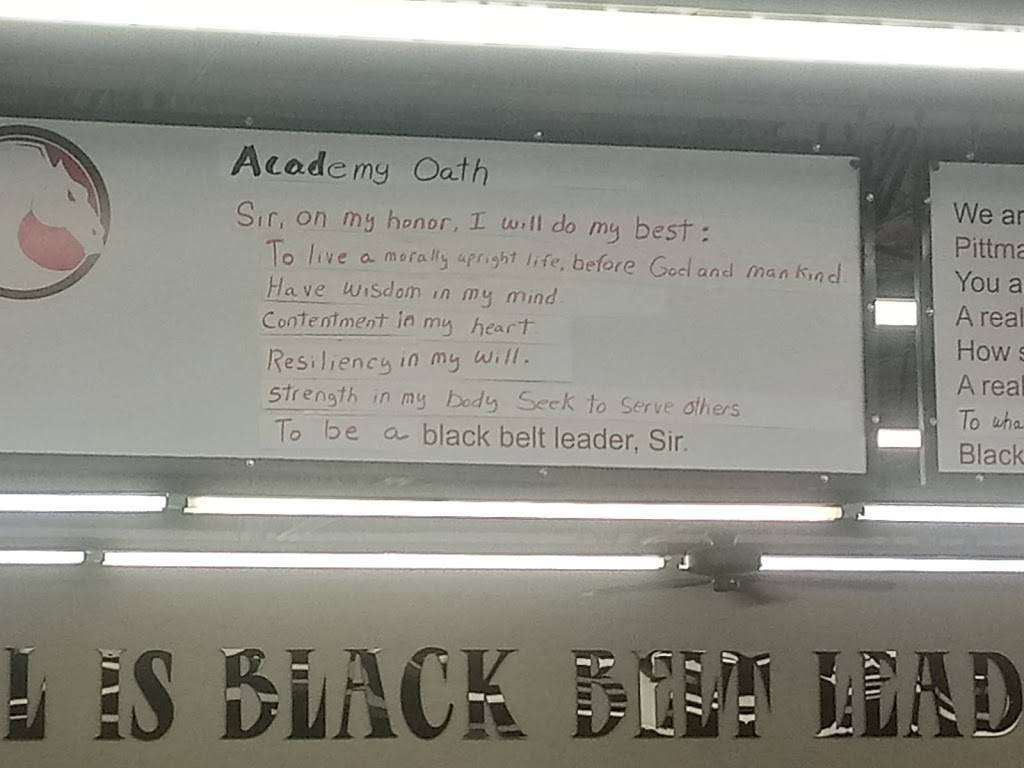 Academy Oath
Sir, on my honor, I will do my best:
To live a morally upright life, before God and mankind.
Have wisdom in my mind
Contentment in my heart
Resiliency in my will.
strength in my body Seek to serve others
To be a black belt leader, Sir.
We ar
Pittma
You a
A real
How s
A real
To wha
Black
L IS BLACK BELT LEAD